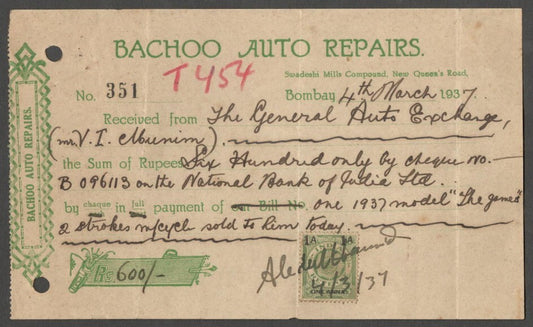 BACHOO AUTO REPAIRS.
Swadeshi Mills Compound, New Queen's Road,
T454
No. 351
Bombay 4th March 1937.
Received from The General Auto Exchange,
(mr. V. I. Munim).
the Sum of Rupees Six Hundred only by cheque no.
B 096113 on the National Bank of India Ltd.
by cheque in full payment of our Bill No one 1937 model "The
2 strokes m/cycl sold to him today.
BACHOO AUTO REPAIRS.
Rs. 600/-
1A 1A
ONE ANNA
4/3/37